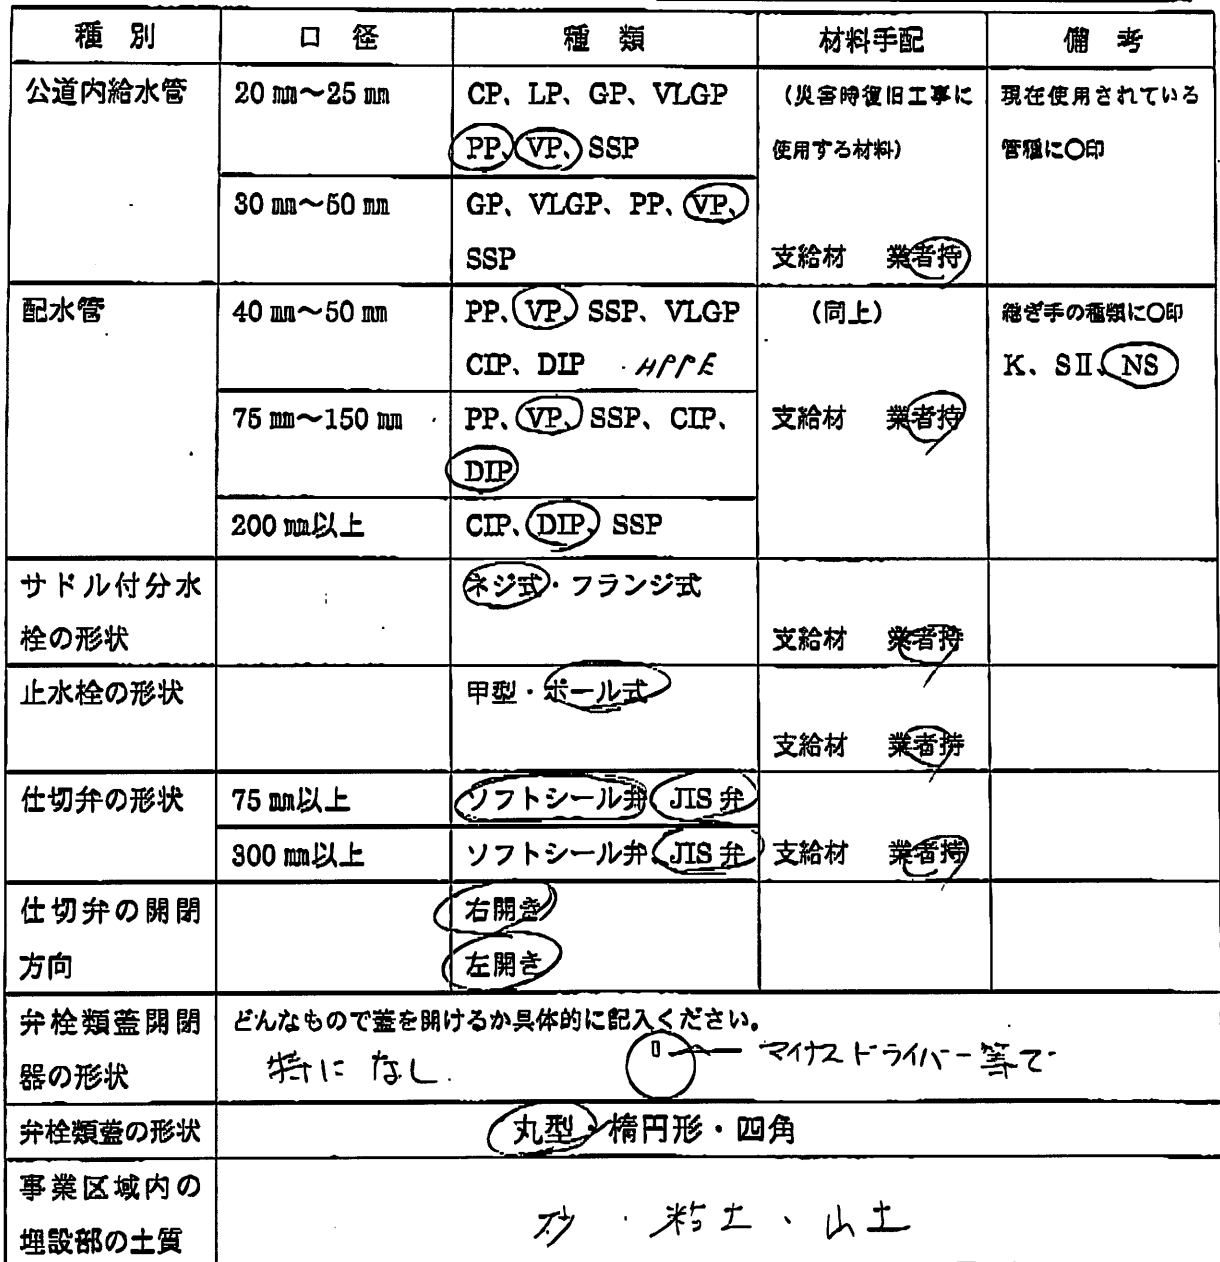 種別 口径 種類 材料手配 備考
公道内給水管 20㎜～25㎜ CP、LP、GP、VLGP (災害時復旧工事に 現在使用されている
PP、VP、SSP 使用する材料) 管種に○印
30㎜～50㎜ GP、VLGP、PP、VP、
SSP 支給材 業者持
配水管 40㎜～50㎜ PP、VP、SSP、VLGP (同上) 継ぎ手の種類に○印
CIP、DIP HPPE K、SⅡ、NS
75㎜～150㎜ PP、VP、SSP、CIP、 支給材 業者持
DIP
200㎜以上 CIP、DIP、SSP
サドル付分水 ネジ式・フランジ式
栓の形状 支給材 業者持
止水栓の形状 甲型・ボール式
支給材 業者持
仕切弁の形状 75㎜以上 ソフトシール弁 JIS弁
300㎜以上 ソフトシール弁 JIS弁 支給材 業者持
仕切弁の開閉 右開き
方向 左開き
弁栓類蓋開閉 どんなもので蓋を開けるか具体的に記入ください。
器の形状 特になし. マイナスドライバー等で
弁栓類蓋の形状 丸型・楕円形・四角
事業区域内の
埋設部の土質 砂・粘土・山土